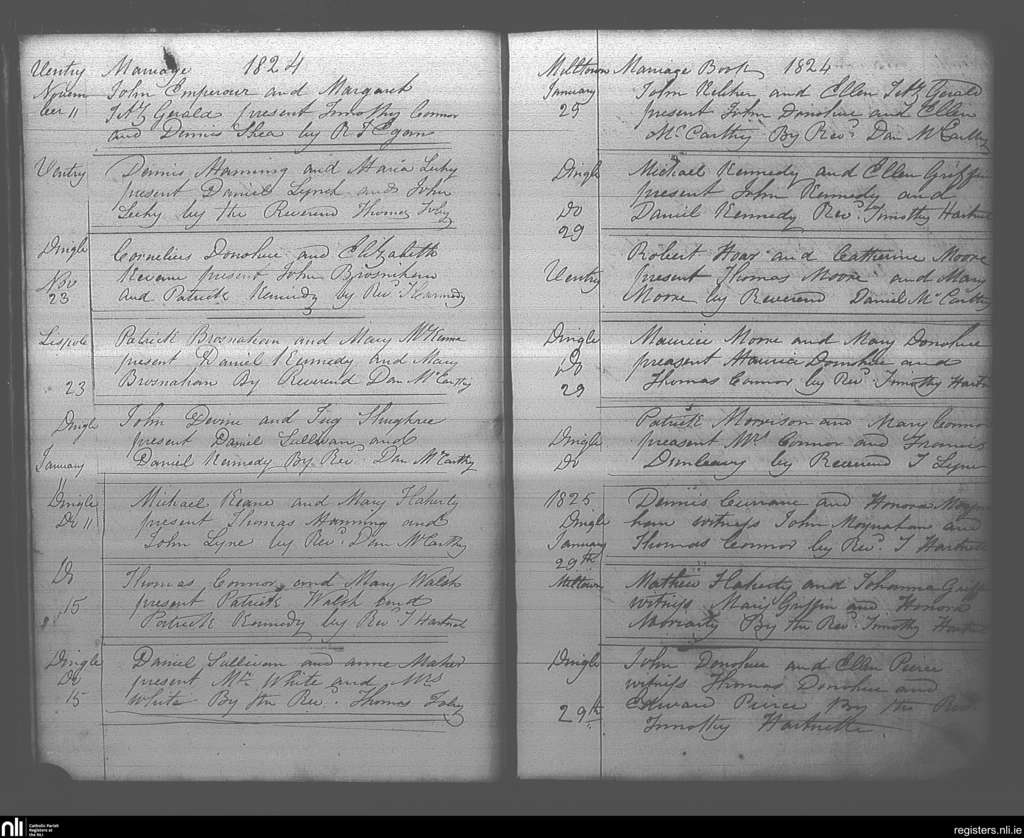 Ventry Marriage 1824
Novem John Emperour and Margaret
ber 11 Fitz Gerald present Timothy Connor
and Dennis Shea by R J Egan
Ventry Dennis Manning and Maria Leehy
present Daniel Lynch and John
Leehy by the Reverend Thomas Foley
Dingle Cornelius Donohue and Elizabeth
Nov Keane present John Brosnihan
23 and Patrick Kennedy by Revd T
Lispole Patrick Brosnahan and Mary McKenna
present Daniel Kennedy and Mary
23 Brosnahan By Reverend Dan McCarthy
Dingle John Devine and
present Daniel Sullivan and
January Daniel Kennedy By Revd Dan McCarthy
11
Dingle Michael Keane and Mary Flaherty
Do 11 present Thomas Manning and
John Lyne by Revd Dan McCarthy
Do Thomas Connor and Mary Walsh
present Patrick Walsh and
15 Patrick Kennedy by Revd T Hartnet
Dingle Daniel Sullivan and anne Maher
Do present Mr White and Mrs
15 White By the Revd Thomas Foley
Milltown Marriage Book 1824
January John Kelcher and Ellen Fitz Gerald
25 present John Donohue and Ellen
McCarthy By Revd Dan McCarthy
Dingle Michael Kennedy and Ellen Griffin
present John Kennedy and
Do Daniel Kennedy Revd Timothy Hartnet
29
Robert Hoar and Catherine Moore
Ventry present Thomas Moore and Mary
Moore by Reverend Daniel McCarthy
Dingle Maurice Moore and Mary Donohue
Do preasent Maurice Donohue and
29 Thomas Connor by Revd Timothy Hartn
Patrick Morrison and Mary Connor
Dingle preasent Mrs Connor and Francis
Do Dunleavy by Reverend T Lyne
1825 Dennis Currane and Honora Moyna
Dingle han witness John Moynahan and
January Thomas Connor by Revd T Hartnett
29th
Milltown Mathew Flaherty and Johanna Griff
witness Mary Griffin and Honora
Moriarty By the Revd Timothy Hartnet
Dingle John Donohue and Ellen Pierce
witness Thomas Donohue and
29th Edward Pierce By the Revd
Timothy Hartnette
nli Catholic Parish
Registers at
the NLI
registers.nli.ie